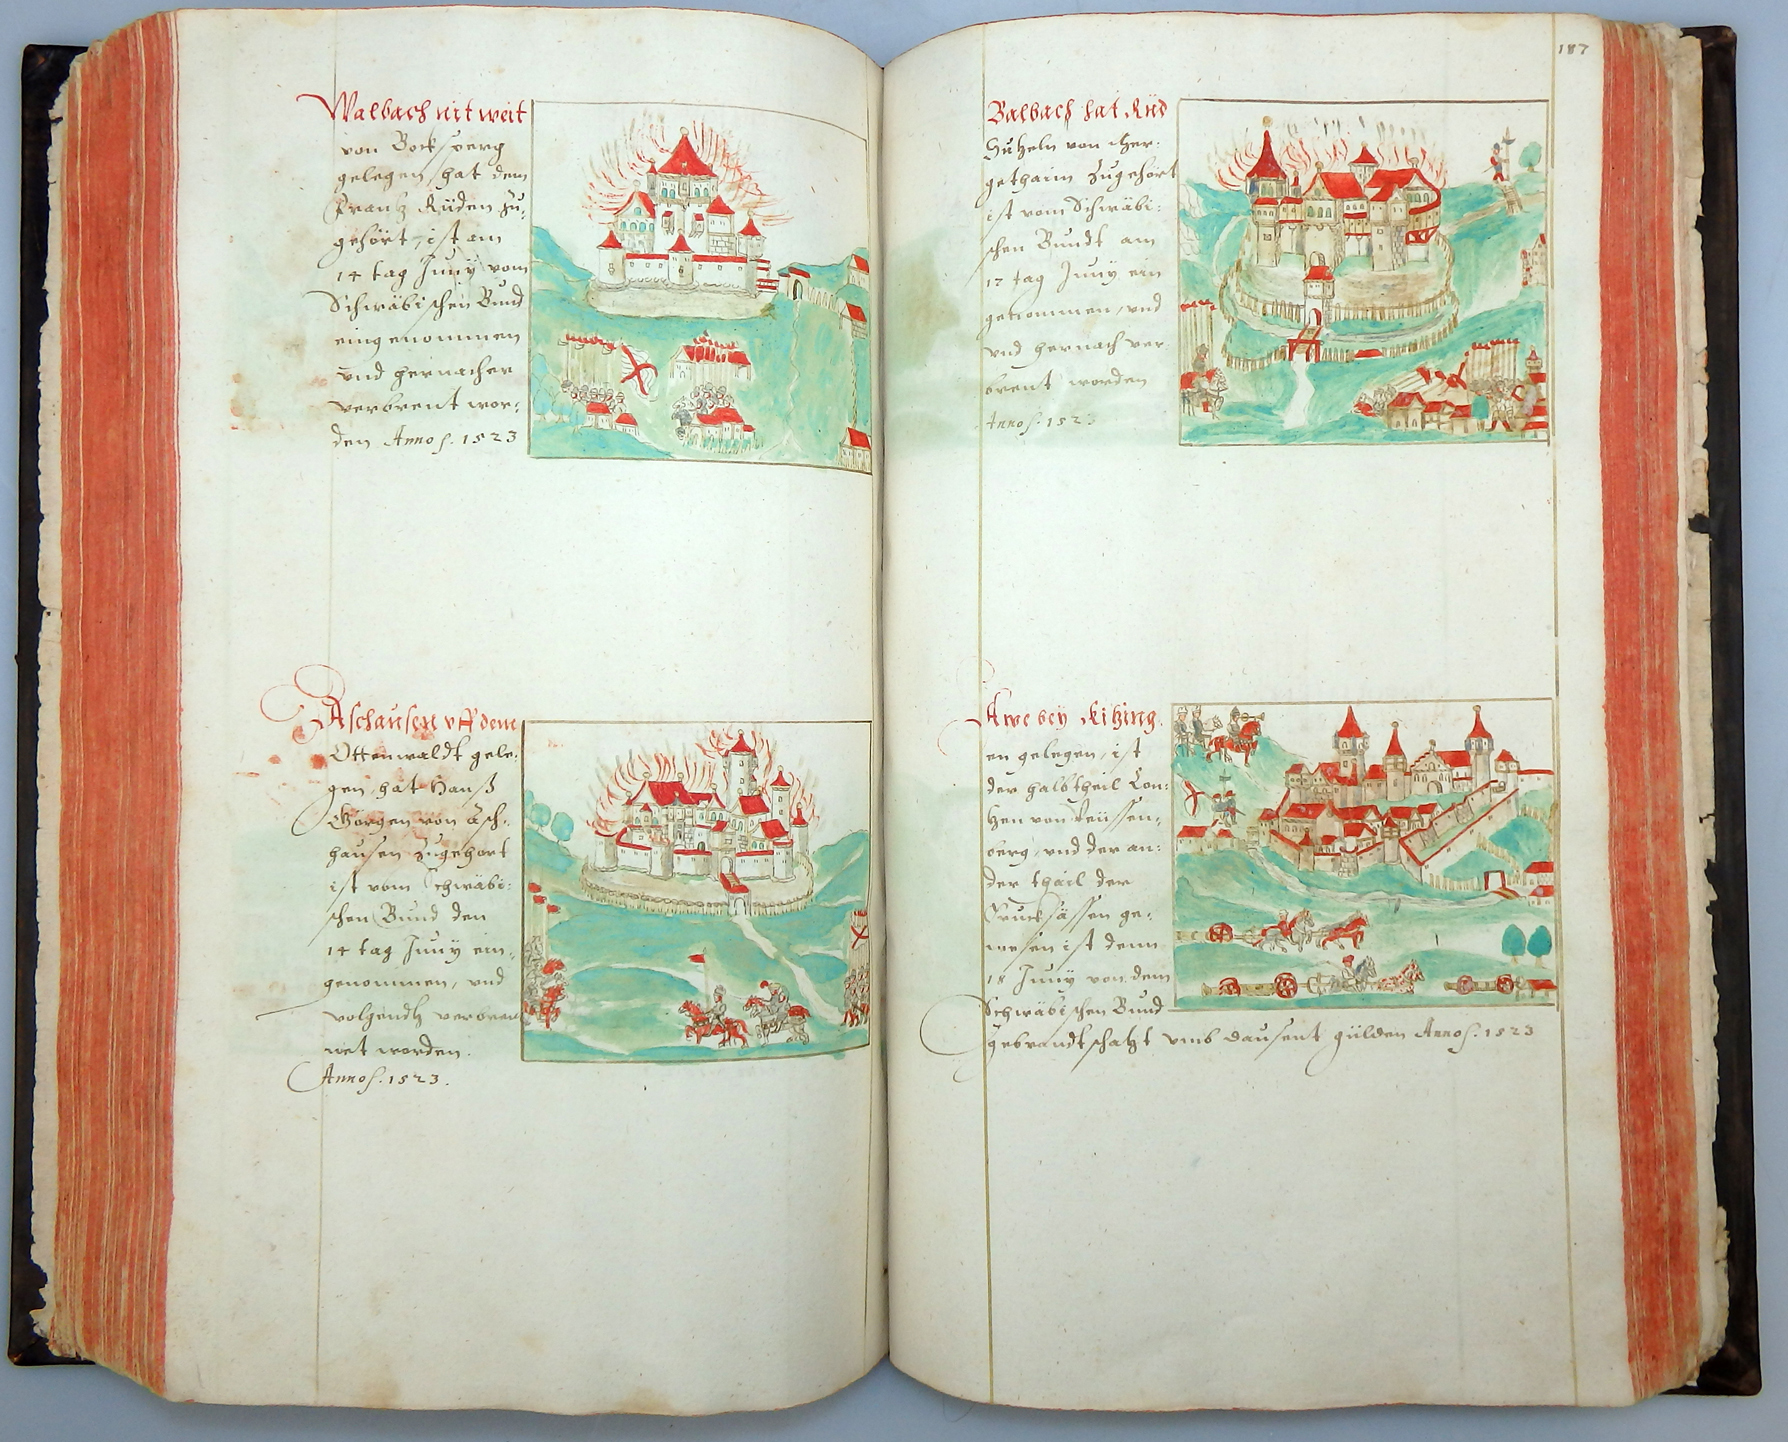 Walbach nit weit
von Bocksperg
gelegen, hat dem
Frantz Rüden zu-
gehört, ist am
14 tag Junÿ vom
Schwäbischen Bund
eingenommen
vnd hernacher
verbrent wor-
den Anno 1523
Aschausen vff dem
Ottenwaldt gele-
gen, hat Hanß
Görgen von Asch-
hausen zugehört
ist vom Schwäbi-
schen Bund den
14 tag Junÿ ein-
genommen, vnd
volgendtz verbren-
net worden.
Anno 1523.
187
Balbach hat Rüd
Sützeln von Mer-
gethaim zugehört
ist vom Schwäbi-
schen Bundt am
17 tag Junÿ ein
genommen, vnd
vnd hernach ver
brent worden
Anno 1523
Awe beÿ Kitzing-
en gelegen, ist
der halb theil Con-
tzen von
berg, vnd der an-
der thail der
Trucksässen ge-
wesen ist denn
18 Junÿ von dem
Schwäbischen Bund
gebrandtschatzt vmb dausent gülden Anno 1523